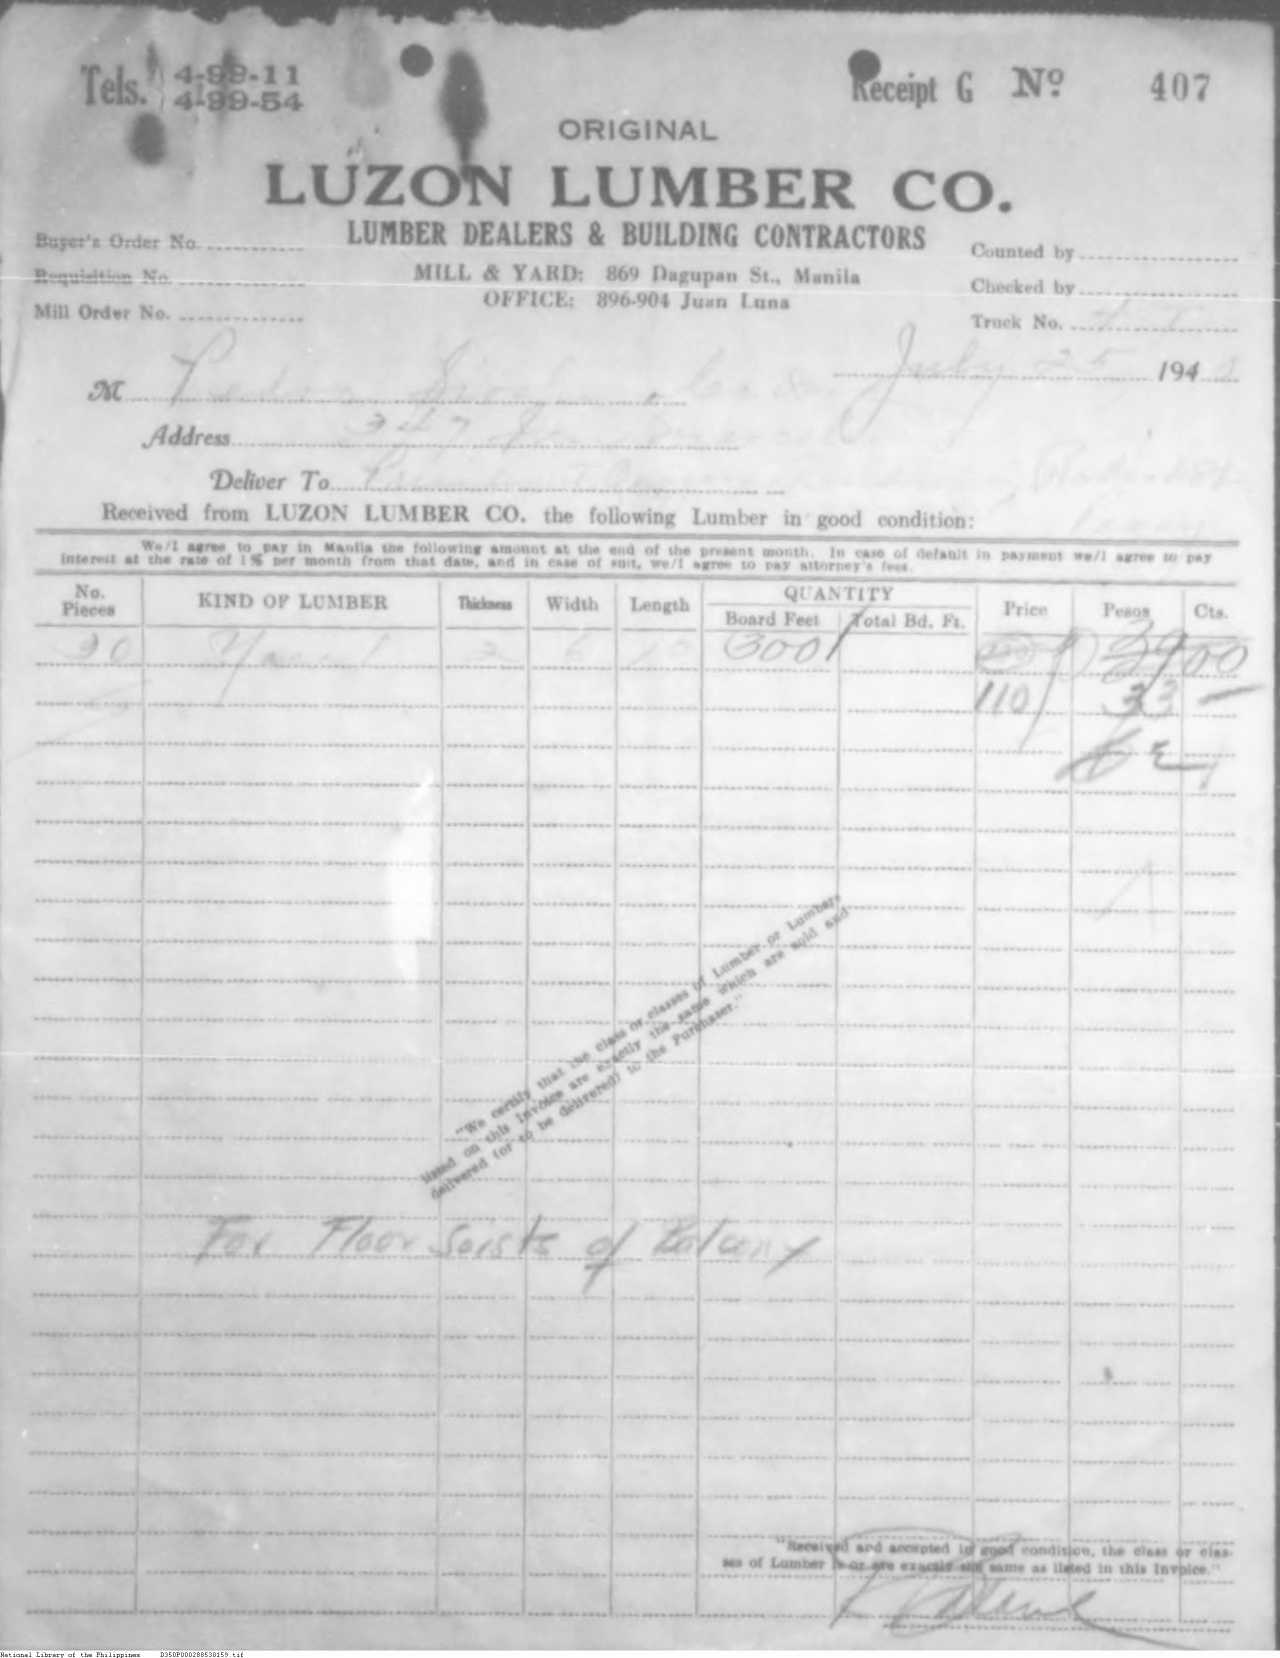 Tels. 4-99-11
4-99-54
Receipt G No. 407
ORIGINAL
LUZON LUMBER CO.
LUMBER DEALERS & BUILDING CONTRACTORS
MILL & YARD: 869 Dagupan St., Manila
OFFICE: 896-904 Juan Luna
Buyer's Order No.
Requisition No.
Mill Order No.
Counted by
Checked by
Truck No.
July 25 194
M
Address 347
Deliver To
Received from LUZON LUMBER CO. the following Lumber in good condition:
We/I agree to pay in Manila the following amount at the end of the present month. In case of default in payment we/I agree to pay
interest at the rate of 1% per month from that date, and in case of suit, we/I agree to pay attorney's fees.
No. Pieces KIND OF LUMBER Thickness Width Length QUANTITY Board Feet Total Bd. Ft. Price Pesos Cts.
30 2 6 300 39 00
110 33 —
"We certify that the class or classes of Lumber or Lumbers
listed on this Invoice are exactly the same which are sold and
delivered (or to be delivered) to the Purchaser."
For Floor Joists of Balcony
"Received and accepted in good condition, the class or clas-
ses of Lumber is or are exactly the same as listed in this Invoice."
National Library of the Philippines D350P000288538159.tif